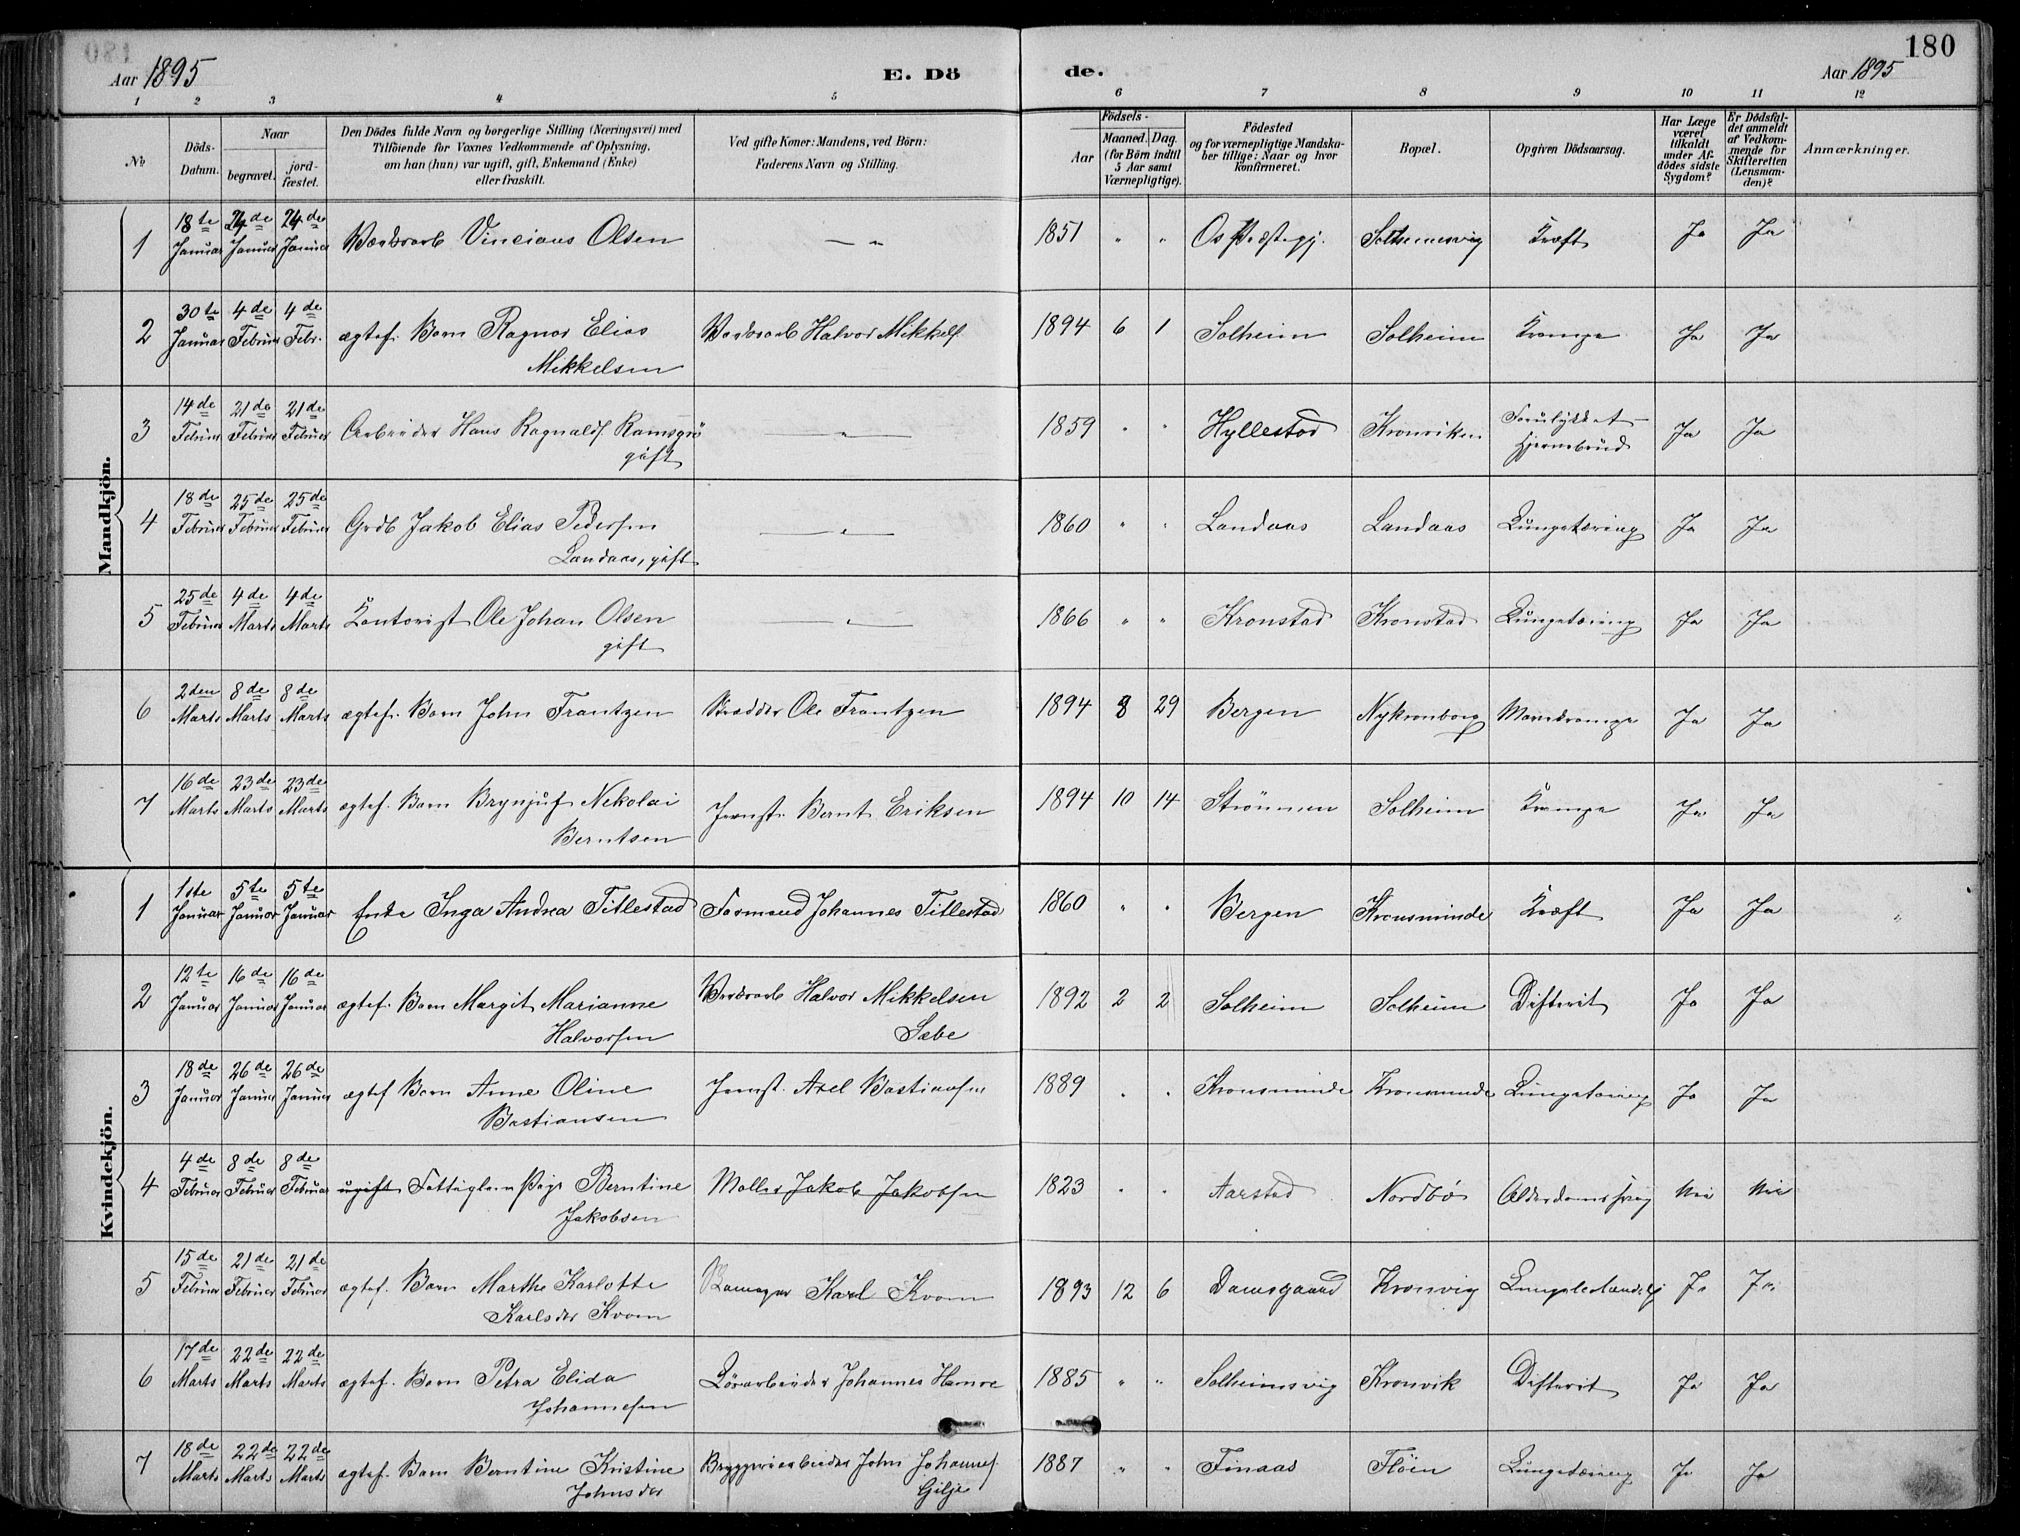 180
Aar 1895
E. Dö
de.
Aar 1895
1 2 3 4 5 6 7 8 9 10 11 12
No
Döds-Datum.
Naar
begravet.
jord-fæstet.
Den Dödes fulde Navn og borgerlige Stilling (Næringsvei) med
Tilföiende for Voxnes Vedkommende af Oplysning,
om han (hun) var ugift, gift, Enkemand (Enke)
eller fraskilt.
Ved gifte Koner: Mandens, ved Börn:
Faderens Navn og Stilling.
Födsels-
Aar
Maaned. Dag.
(for Börn indtil
5 Aar samt
Værnepligtige).
Födested
og for værnepligtige Mandska-
ber tillige: Naar og hvor
Konfirmeret.
Bopæl.
Opgiven Dödsaarsag.
Har Læge
været
tilkaldt
under Af-
dödes sidste
Sygdom?
Er Dödsfal-
det anmeldt
af Vedkom-
mende for
Skifteretten
(Lensman-
den)?
Anmærkninger.
Mandkjön.
1 18te Januar 24de Januar 24de Januar Vincians Olsen — " 1851 " " Os Præstegj. Solheimsvig Kræft Ja Ja
2 30te Januar 4de Februar 4de Febr. ægtef. Barn Ragnar Elias Halvor Mikkels. 1894 6 1 Solheim Solheim Krampe Ja Ja
Mikkelsen
3 14de Februar 21de Februar 21de Februar Arbeider Hans Ragnalds. Ramsgrö — " — 1859 " " Hyllestad Kronviken Forulykket – Ja Ja
gift Hjernebrud
4 18de Februar 25de Februar 25de Februar Grdb Jakob Elias Pedersen — " — 1860 " " Landaas Landaas Lungetæring Ja Ja
Landaas, gift
5 25de Februar 4de Marts 4de Marts Kontorist Ole Johan Olsen — " — 1866 " " Kronstad Kronstad Lungetæring Ja Ja
gift
6 2den Marts 8de Marts 8de Marts ægtef. Barn John Frantzen Ole Frantzen 1894 8 29 Bergen Nykronborg Mavekrampe Ja Ja
7 16de Marts 23de Marts 23de Marts ægtef. Barn Brynjulf Nekolai Jernst. Bernt Eriksen 1894 10 14 Strömmen Solheim Krampe Ja Ja
Berntsen
Kvindekjön.
1 1ste Januar 5te Januar 5te Januar Enke Inga Andrea Titlestad Formand Johannes Titlestad 1860 " " Bergen Kronsminde Kræft Ja Ja "
2 12te Januar 16de Januar 16de Januar ægtef. Barn Margit Marianne Halvor Mikkelsen 1892 2 2 Solheim Solheim Difterit Ja Ja
Halvorsen Sæbe
3 18de Januar 26de Januar 26de Januar ægtef Barn Anne Oline Jernst. Axel Bastiansen 1889 " " Kronsminde Kronsminde Lungetæring Ja Ja
Bastiansen
4 4de Februar 8de Februar 8de Februar ugift Fattiglem Pige Berntine Møller Jakob Jakobsen 1823 " " Aarstad Nordbö Alderdomssvag Nei Nei
Jakobsen
5 15de Februar 21de Februar 21de Februar ægtef. Barn Marthe Karlotte Karl Kvam 1893 12 6 Damsgaard Kronvig Lungebetændelse Ja Ja
Karlsdtr Kvam
6 17de Marts 22de Marts 22de Marts ægtef. Barn Petra Elida Johannes Hamre 1885 " " Solheimsvig Kronvik Difterit Ja Ja
Johannesen
7 18de Marts 22de Marts 22de Marts ægtef. Barn Berntine Kristine Bryggeriarbeider John Johannes. 1887 " " Finaas Flöien Lungetæring Ja Ja
Johnsdtr Gilje